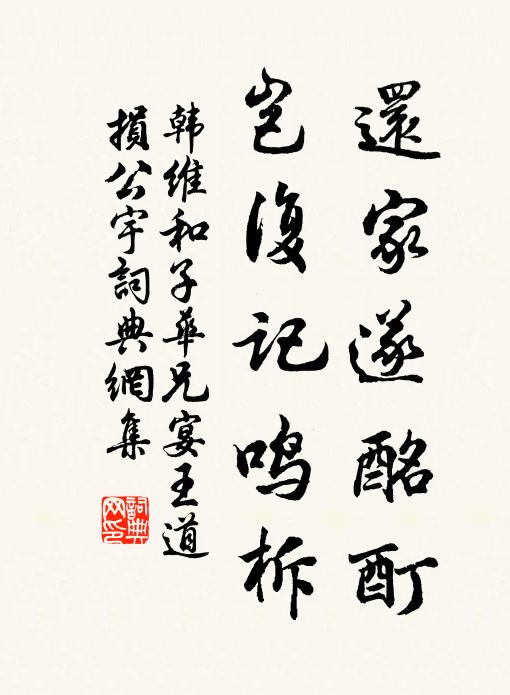 還家遂酩酊
岂復记鸣柝
韩维和子華兄宴王道
損公宇詞典網集
詞典
网印